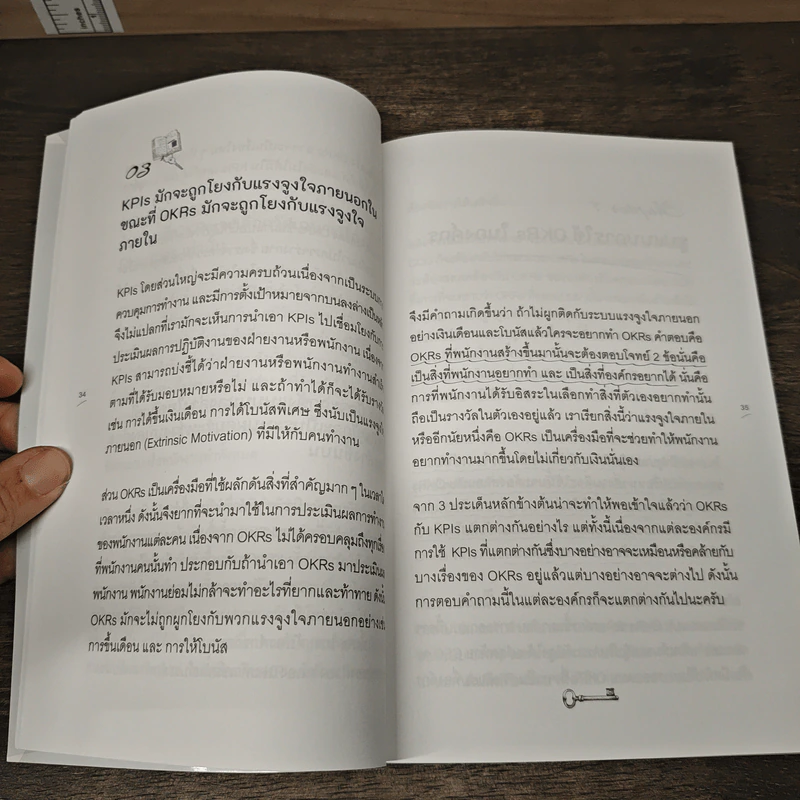 inches
03
KPIs มักจะถูกโยงกับแรงจูงใจภายนอกใน
ขณะที่ OKRs มักจะถูกโยงกับแรงจูงใจ
ภายใน
KPIs โดยส่วนใหญ่จะมีความครบถ้วนเนื่องจากเป็นระบบ
ควบคุมการทำงาน และมีการตั้งเป้าหมายจากบนลงล่าง
จึงไม่แปลกที่เรามักจะเห็นการนำเอา KPIs ไปเชื่อมโยงกับ
ประเมินผลการปฏิบัติงานของฝ่ายงานหรือพนักงาน
KPIs สามารถบ่งชี้ได้ว่าฝ่ายงานหรือพนักงานทำงาน
ตามที่ได้รับมอบหมายหรือไม่ และถ้าทำได้ก็จะได้รับ
เช่น การได้ขึ้นเงินเดือน การได้โบนัสพิเศษ ซึ่งนับเป็น
ภายนอก (Extrinsic Motivation) ที่มีให้กับคนทำงาน
34
ส่วน OKRs เป็นเครื่องมือที่ใช้ผลักดันสิ่งที่สำคัญมาก ๆ ใน
เวลาหนึ่ง ดังนั้นจึงยากที่จะนำมาใช้ในการประเมินผลการ
ของพนักงานแต่ละคน เนื่องจาก OKRs ไม่ได้ครอบคลุมถึง
ที่พนักงานคนนั้นทำ ประกอบกับถ้านำเอา OKRs มา
พนักงาน พนักงานย่อมไม่กล้าจะทำอะไรที่ยากและท้าทาย
OKRs มักจะไม่ถูกผูกโยงกับพวกแรงจูงใจภายนอกอย่าง
การขึ้นเดือน และ การให้โบนัส
จึงมีคำถามเกิดขึ้นว่า ถ้าไม่ผูกติดกับระบบแรงจูงใจภายนอก
อย่างเงินเดือนและโบนัสแล้วใครจะอยากทำ OKRs คำตอบคือ
OKRs ที่พนักงานสร้างขึ้นมานั้นจะต้องตอบโจทย์ 2 ข้อนั่นคือ
เป็นสิ่งที่พนักงานอยากทำ และ เป็นสิ่งที่องค์กรอยากได้ นั่นคือ
การที่พนักงานได้รับอิสระในเลือกทำสิ่งที่ตัวเองอยากทำนั้น
ถือเป็นรางวัลในตัวเองอยู่แล้ว เราเรียกสิ่งนี้ว่าแรงจูงใจภายใน
หรืออีกนัยหนึ่งคือ OKRs เป็นเครื่องมือที่จะช่วยทำให้พนักงาน
อยากทำงานมากขึ้นโดยไม่เกี่ยวกับเงินนั่นเอง
35
จาก 3 ประเด็นหลักข้างต้นน่าจะทำให้พอเข้าใจแล้วว่า OKRs
กับ KPIs แตกต่างกันอย่างไร แต่ทั้งนี้เนื่องจากแต่ละองค์กรมี
การใช้ KPIs ที่แตกต่างกันซึ่งบางอย่างอาจจะเหมือนหรือคล้ายกับ
บางเรื่องของ OKRs อยู่แล้วแต่บางอย่างอาจจะต่างไป ดังนั้น
การตอบคำถามนี้ในแต่ละองค์กรก็จะแตกต่างกันไปนะครับ